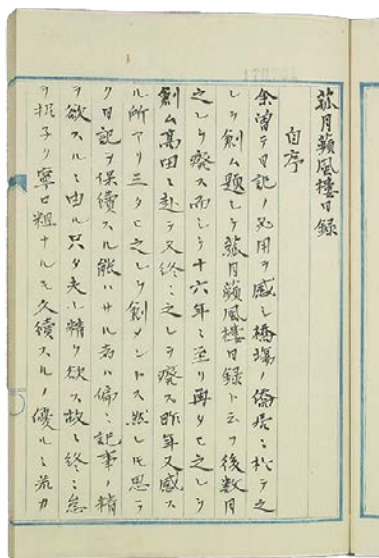 蘓月蘋風樓日録
自序
余曽テ日記ノ必用ヲ感シ橋塲ノ僑居ニ於テ之
レヲ創ム題シテ蘓月蘋風樓日録ト云フ後数月
之レヲ廃ス而シテ十六年ニ至リ再タヒ之レヲ
創ム髙田ニ赴テ又終ニ之レヲ廃ス昨年又感ス
ル所アリ三タヒ之レヲ創メントス然レ𪜈思ラ
ク日記ヲ保續スル能ハサル者ハ偏ニ記事ノ精
ヲ欲スルニ由ル只タ夫レ精ヲ欲ス故ニ終ニ怠
ヲ招ク寧ロ粗ナルモ久續スルノ優ルニ若カ